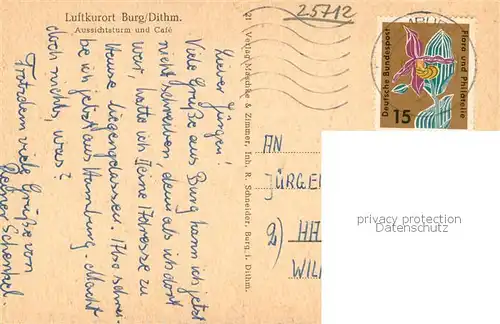 Luftkurort Burg/Dithm.
Aussichtsturm und Café
25712
Lieber Jürgen!
Viele Grüße aus Burg kann ich jetzt
nicht schreiben denn als ich dort
war, hatte ich Deine Adresse zu
Hause liegengelassen. Also schrei-
be ich jetzt aus Hamburg. Macht
doch nichts, was?
Trotzdem viele Grüße von
Deiner Schenkel.
21 Verlag Maschke & Zimmer, Inh. R. Schneider, Burg i. Dithm.
Deutsche Bundespost
Flora und Philatelie
15
AN
JÜRGE
2) HA
WIL
privacy protection
privacy protection